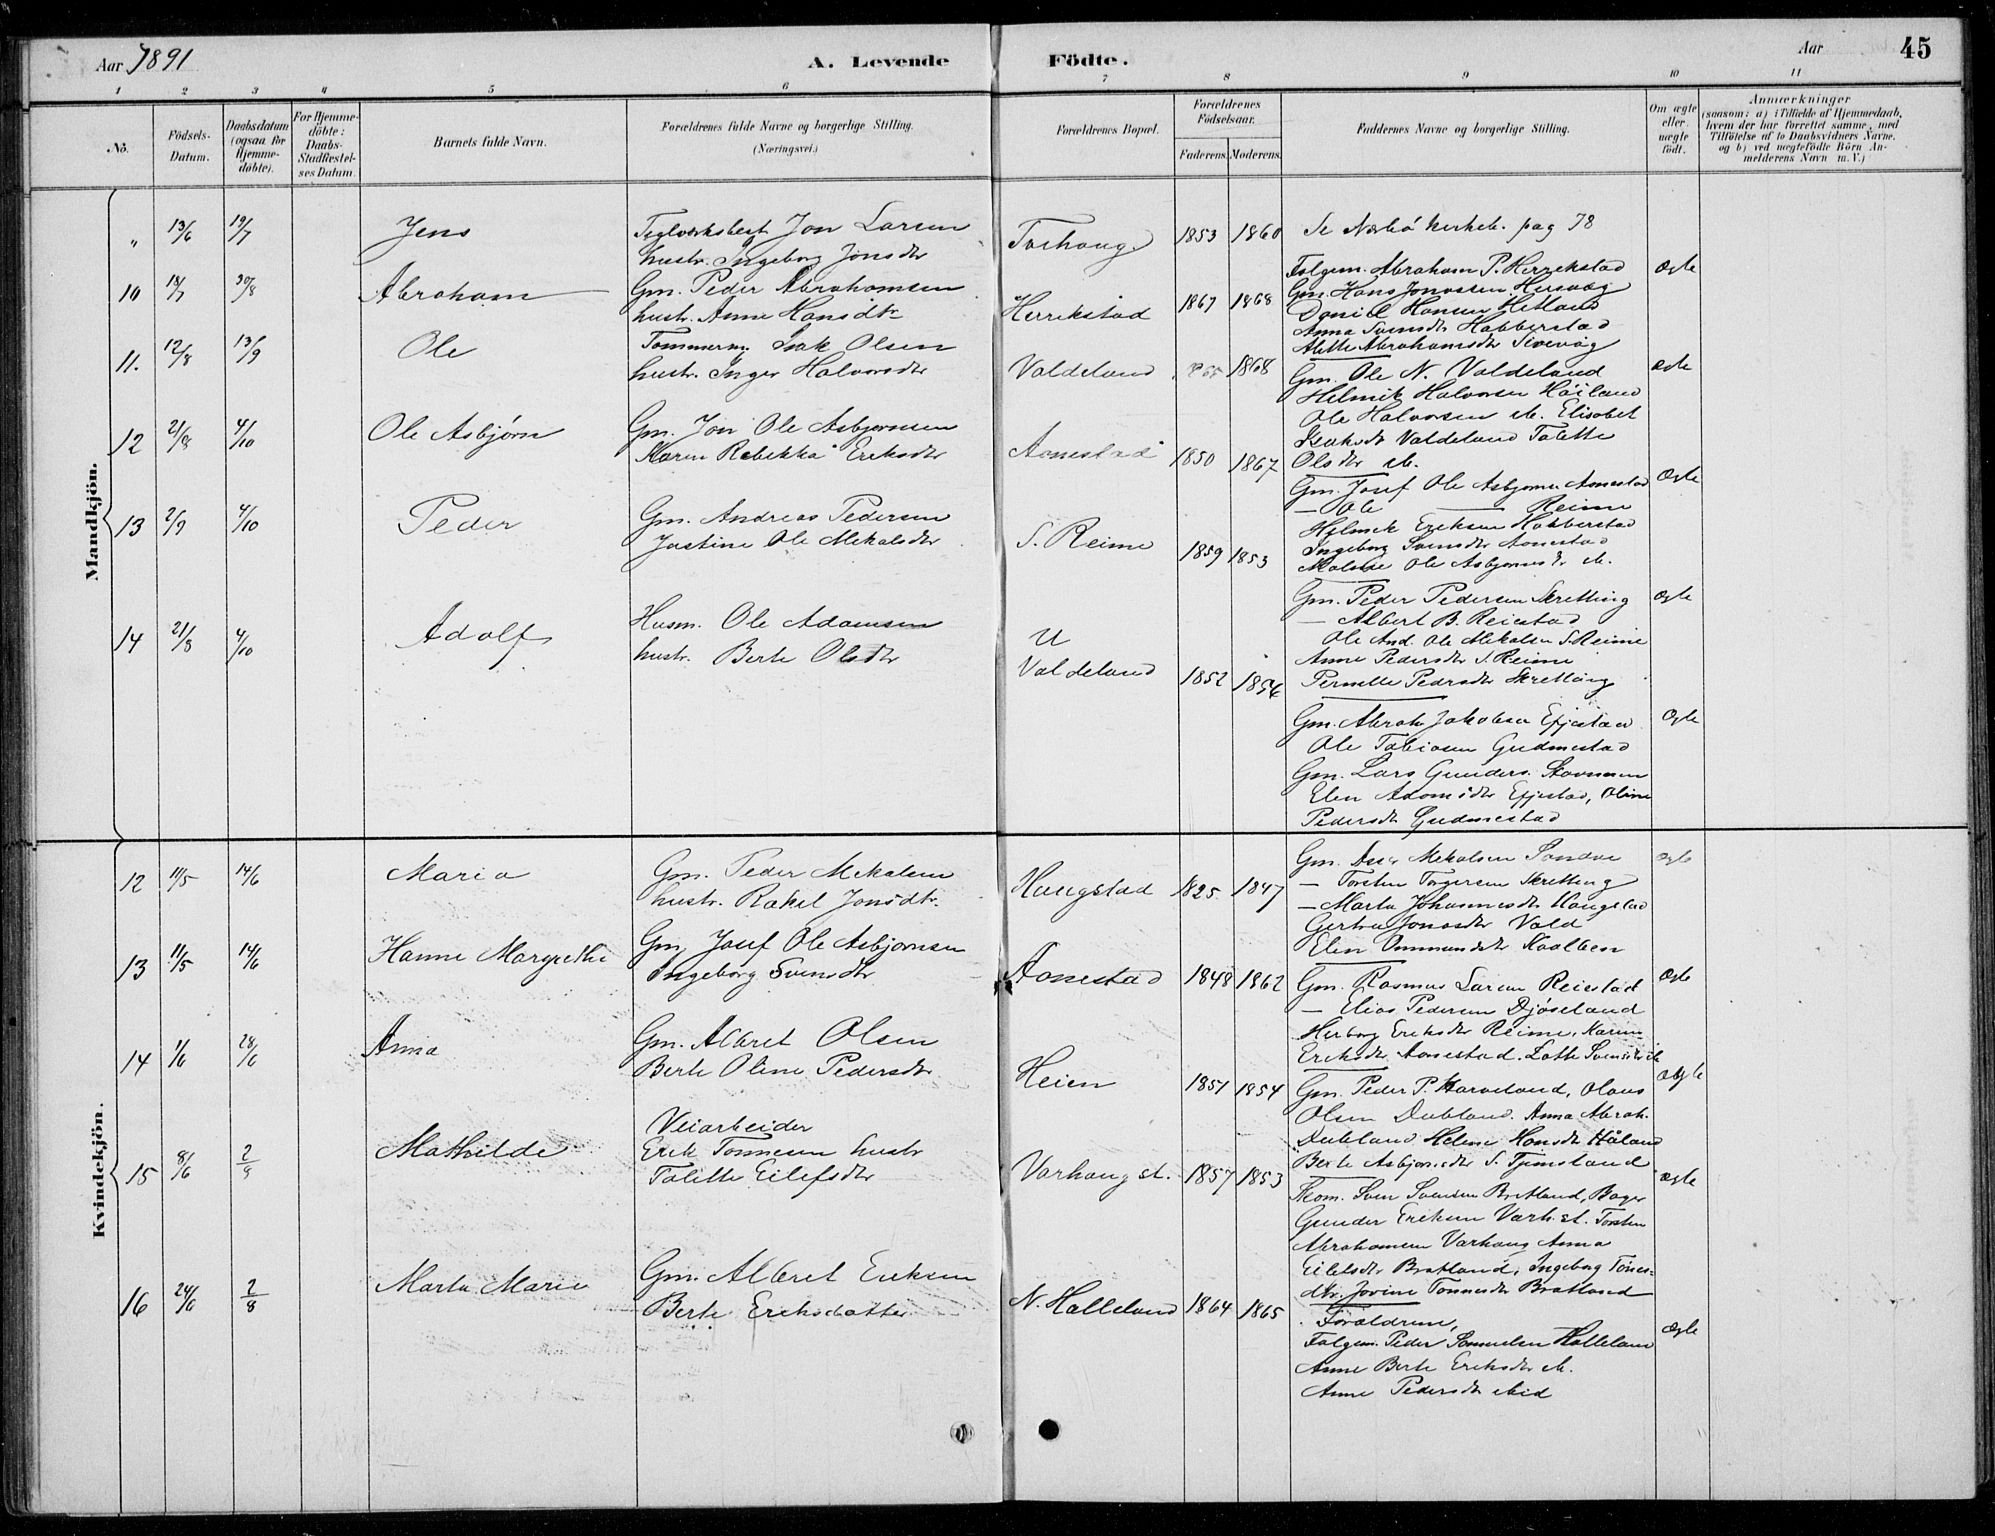 Aar 1891
A. Levende Födte.
Aar
45
1 2 3 4 5 6 7 8 9 10 11
No.
Födsels-Datum.
Daabsdatum (ogsaa for Hjemme-döbte).
For Hjemme-döbte: Daabs-Stadfæstel-ses Datum.
Barnets fulde Navn.
Forældrenes fulde Navne og borgerlige Stilling. (Næringsvei.)
Forældrenes Bopæl.
Forældrenes Födselsaar.
Faderens. Moderens.
Faddernes Navne og borgerlige Stilling.
Om ægte eller uægte födt.
Anmærkninger
(saasom: a) i Tilfælde af Hjemmedaab,
hvem der har forrettet samme, med
Tilföielse af to Daabsvidners Navne.
og b) ved uægtefödte Börn An-
melderens Navn m. V.)
Mandkjön.
" 13/6 19/7 Jens
Teglværksbest Jon Larsen
hustr. Ingeborg Jonsdtr
Varhaug 1853 1860
Se Nærbö kirkeb. pag 78
10 18/7 30/8 Abraham
Gm. Peder Abrahamsen
hustr. Anne Hansdtr
Herrekstad 1867 1868
Folgem. Abraham P. Herrekstad
Gm. Hans Jonassen Hersvåg
Daniel Hansen Hetland
Anna Svensdtr Habberstad
Alette Abrahamsdtr Sirevåg
Ægte
11. 12/8 13/9 Ole
Tommerm. Isak Olsen
hustr. Inger Halvorsdtr
Valdeland 1868
Gm. Ole N. Valdeland
Helmik Halvorsen Höiland
Ole Halvorsen ib. Elisabet
Isaksdtr Valdeland Talette
Olsdtr ib.
Ægte
12 21/8 4/10 Ole Asbjørn
Gm. Jon Ole Asbjørnsen
Karen Rebekka Eriksdtr
Aanestad 1850 1867
Gm. Josef Ole Asbjørns. Aanestad
— Ole — Reime
Helmek Eriksen Habberstad
Ingeborg Svensdtr Aanestad
Malene Ole Asbjørnsdtr ib.
Ægte
13 2/9 4/10 Peder
Gm. Andreas Pedersen
Jostine Ole Mikalsdtr
S. Reime 1859 1853
Gm. Peder Pedersen Skretting
— Albert B. Reiestad
Ole And. Ole Mekalsen S. Reime
Anne Pedersdtr S. Reime
Pernille Pedrsdtr Skretting
Ægte
14 21/8 4/10 Adolf
Husm. Ole Adamsen
hustr. Berte Olsdtr
U
Valdeland 1852 1856
Gm. Abrah. Jakobsen Efjestad
Ole Tobiasen Gudmestad
Gm. Lars Gunders. Stavnem
Elen Adamsdtr Efjestad, Oline
Pedersdtr Gudmestad
Ægte
Kvindekjön.
12 11/5 14/6 Maria
Gm. Peder Mekalsen
hustr. Rakel Jonsdtr.
Haugstad 1825 1847
Gm. Mekalsen
— Torsten Torgersen Skretting
— Marta Johannesdtr Haugstad
Gertru Jonasdtr Vold
Elen Ommundsdtr
Ægte
13 11/5 14/6 Hanne Margrethe
Gm. Josef Ole Asbjørnsen
Ingeborg Svensdtr
Aanestad 1848 1862
Gm. Rasmus Larsen Reiestad
— Elias Pedersen Djøseland
Herborg Eriksdtr Reime, Karen
Eriksdtr Aanestad. Lotte Svensdtr ib
Ægte
14 1/6 28/6 Anna
Gm. Albret Olsen
Berte Oline Pedersdtr
Heien 1851 1854
Gm. Peder P. Harveland, Olaus
Olsen Dubland. Anna Abrah.
Dubland Helene Hansdtr Håland
Berte Asbjørnsdtr S. Tjemsland
Ægte
15 8/6 2/8 Mathilde
Veiarbeider
Erik Tonnesen hustr
Talette Eilefsdtr
Varhaug st. 1857 1853
Skom. Sven Svendsen Bratland, Bager
Gunder Eriksen Varh. st. Torsten
Abrahamsen Varhaug Anna
Eilefsdtr Bratland, Ingeborg Tönnes-
dtr. Jovine Tonnesdtr Bratland
Ægte
16 24/6 2/8 Marta Marie
Gm. Albret Eriksen
Berte Eriksdatter
N. Halleland 1864 1865
Forældrene,
Folgem. Peder Samuelsen Halleland
Anne Berte Eriksdtr ib.
Anne Pedersdtr ibid
Ægte